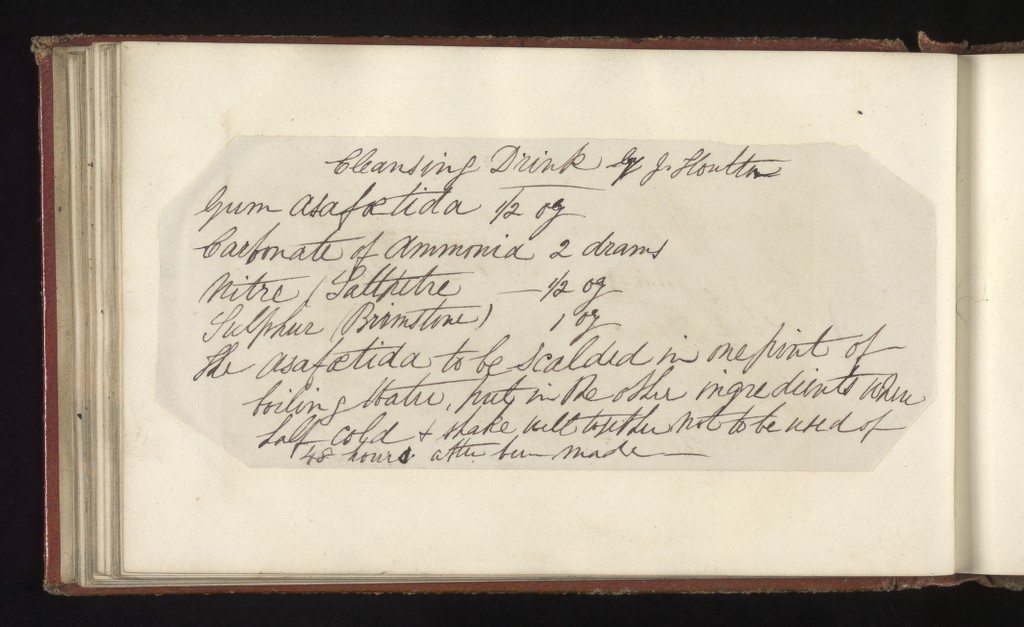 Cleansing Drink by J. Houlton
Gum Asafœtida 1/2 oz
Carbonate of Ammonia 2 drams
Nitre (Saltpetre — 1/2 oz
Sulphur (Brimstone) 1 oz
The Asafœtida to be scalded in one pint of
boiling Water, put in the other ingredients when
half cold & shake well together not to be used of
48 hours after been made —